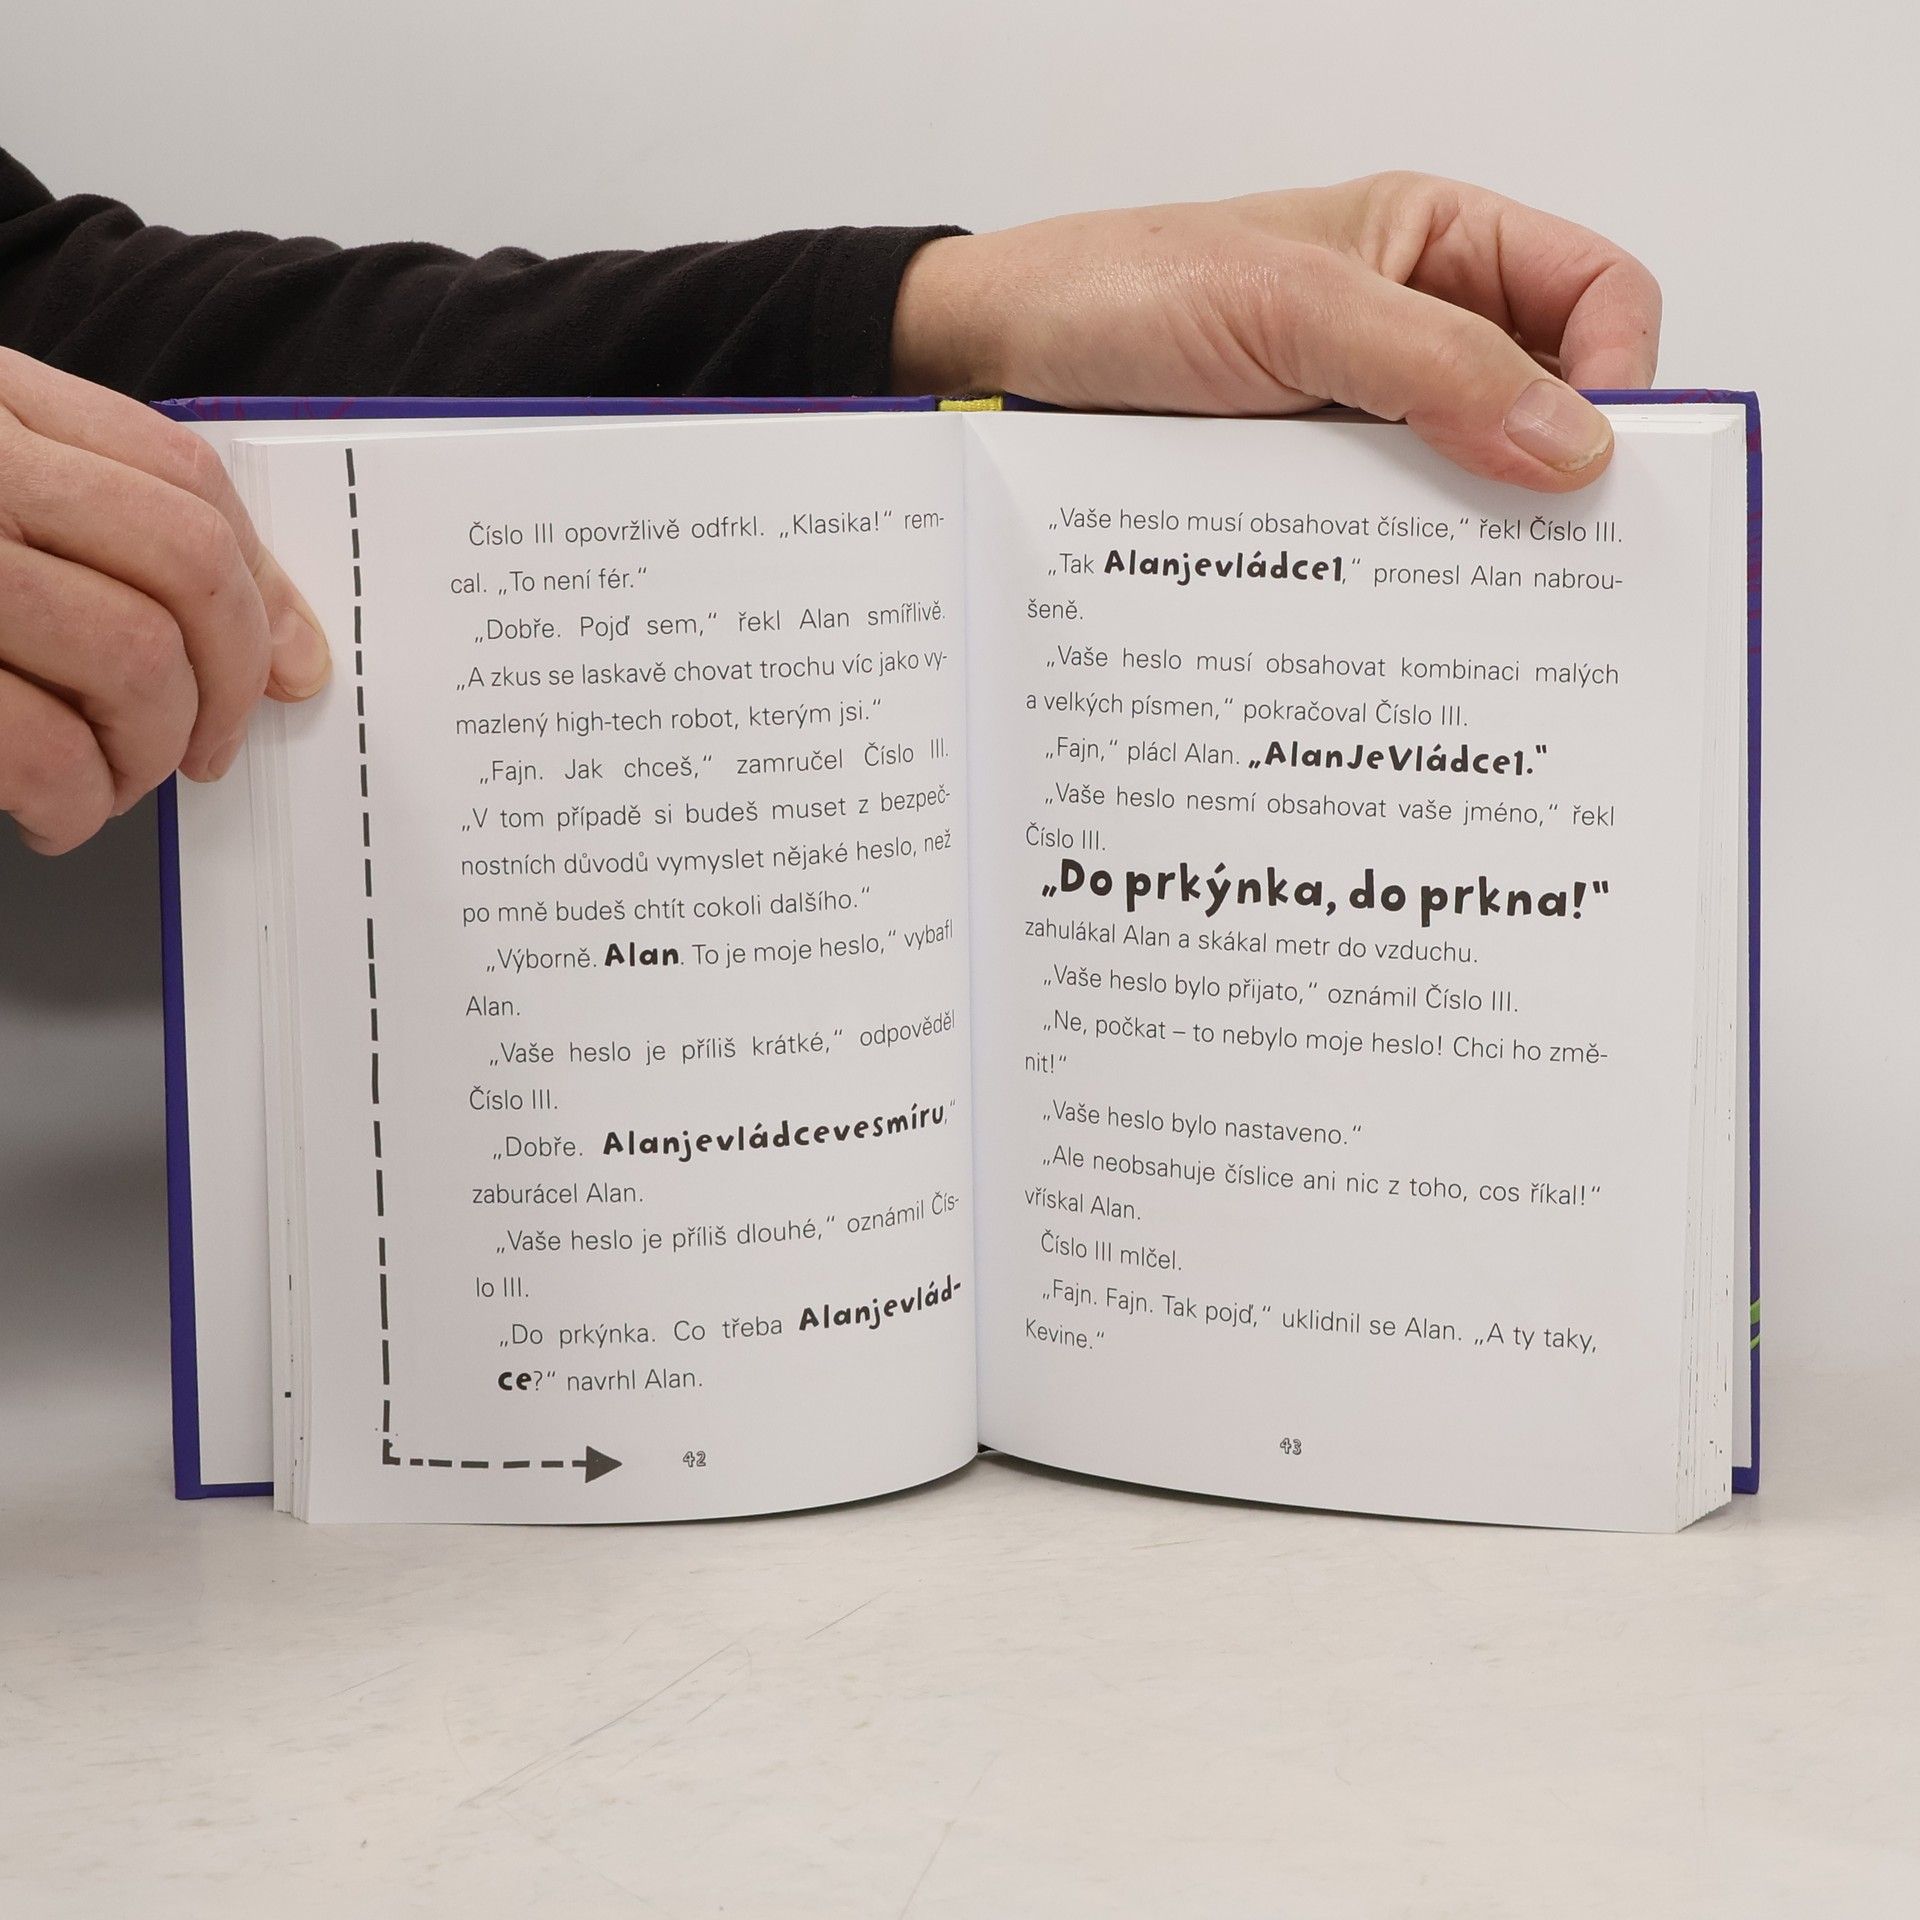 Číslo III opovržlivě odfrkl. „Klasika!“ rem-
cal. „To není fér.“
„Dobře. Pojď sem,“ řekl Alan smířlivě.
„A zkus se laskavě chovat trochu víc jako vy-
mazlený high-tech robot, kterým jsi.“
„Fajn. Jak chceš,“ zamručel Číslo III.
„V tom případě si budeš muset z bezpeč-
nostních důvodů vymyslet nějaké heslo, než
po mně budeš chtít cokoli dalšího.“
„Výborně. Alan. To je moje heslo,“ vybafl
Alan.
„Vaše heslo je příliš krátké,“ odpověděl
Číslo III.
„Dobře. Alanjevládcevesmíru,“
zaburácel Alan.
„Vaše heslo je příliš dlouhé,“ oznámil Čís-
lo III.
„Do prkýnka. Co třeba Alanjevlád-
ce?“ navrhl Alan.
42
„Vaše heslo musí obsahovat číslice,“ řekl Číslo III.
„Tak Alanjevládce1,“ pronesl Alan nabrou-
šeně.
„Vaše heslo musí obsahovat kombinaci malých
a velkých písmen,“ pokračoval Číslo III.
„Fajn,“ plácl Alan. „AlanJeVládce1."
„Vaše heslo nesmí obsahovat vaše jméno,“ řekl
Číslo III.
„Do prkýnka, do prkna!"
zahulákal Alan a skákal metr do vzduchu.
„Vaše heslo bylo přijato,“ oznámil Číslo III.
„Ne, počkat – to nebylo moje heslo! Chci ho změ-
nit!“
„Vaše heslo bylo nastaveno.“
„Ale neobsahuje číslice ani nic z toho, cos říkal!“
vřískal Alan.
Číslo III mlčel.
„Fajn. Fajn. Tak pojď,“ uklidnil se Alan. „A ty taky,
Kevine.“
43